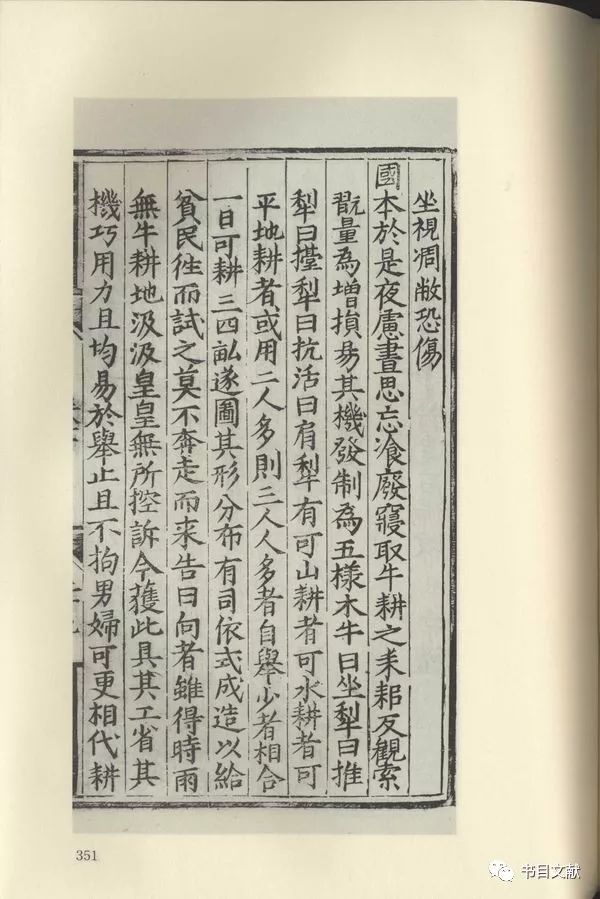 坐視凋敝恐傷
國本於是夜慮晝思忘飡廢寢取牛耕之耒耜反觀索
翫量為增損易其機發制為五樣木牛曰坐犁曰推
犁曰擡犁曰抗活曰肩犁有可山耕者可水耕者可
平地耕者或用二人多則三人人多者自舉少者相合
一日可耕三四畝遂圖其形分布有司依式成造以給
貧民徃而試之莫不奔走而來告曰向者雖得時雨
無牛耕地汲汲皇皇無所控訴今獲此具其工省其
機巧用力且均易於舉止且不拘男婦可更相代耕
351
书目文献